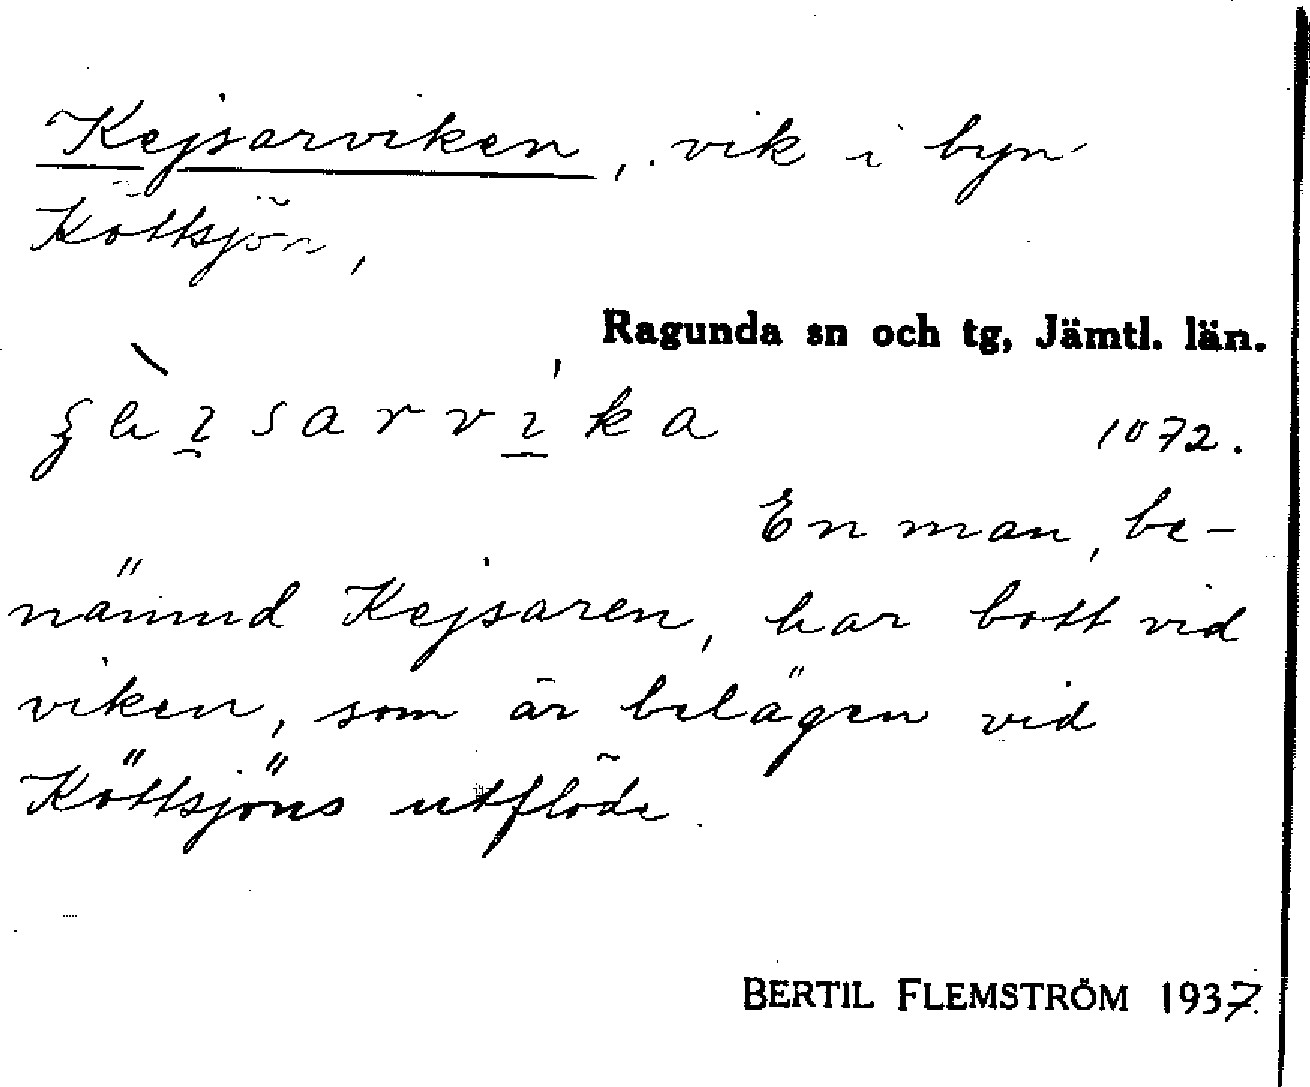 Kejsarviken, vik i byn
Köttsjön,
Ragunda sn och tg, Jämtl. län.
1072.
En man, be-
nämnd Kejsaren, har bott vid
viken, som är belägen vid
Köttsjöns utflöde.
BERTIL FLEMSTRÖM 1937.